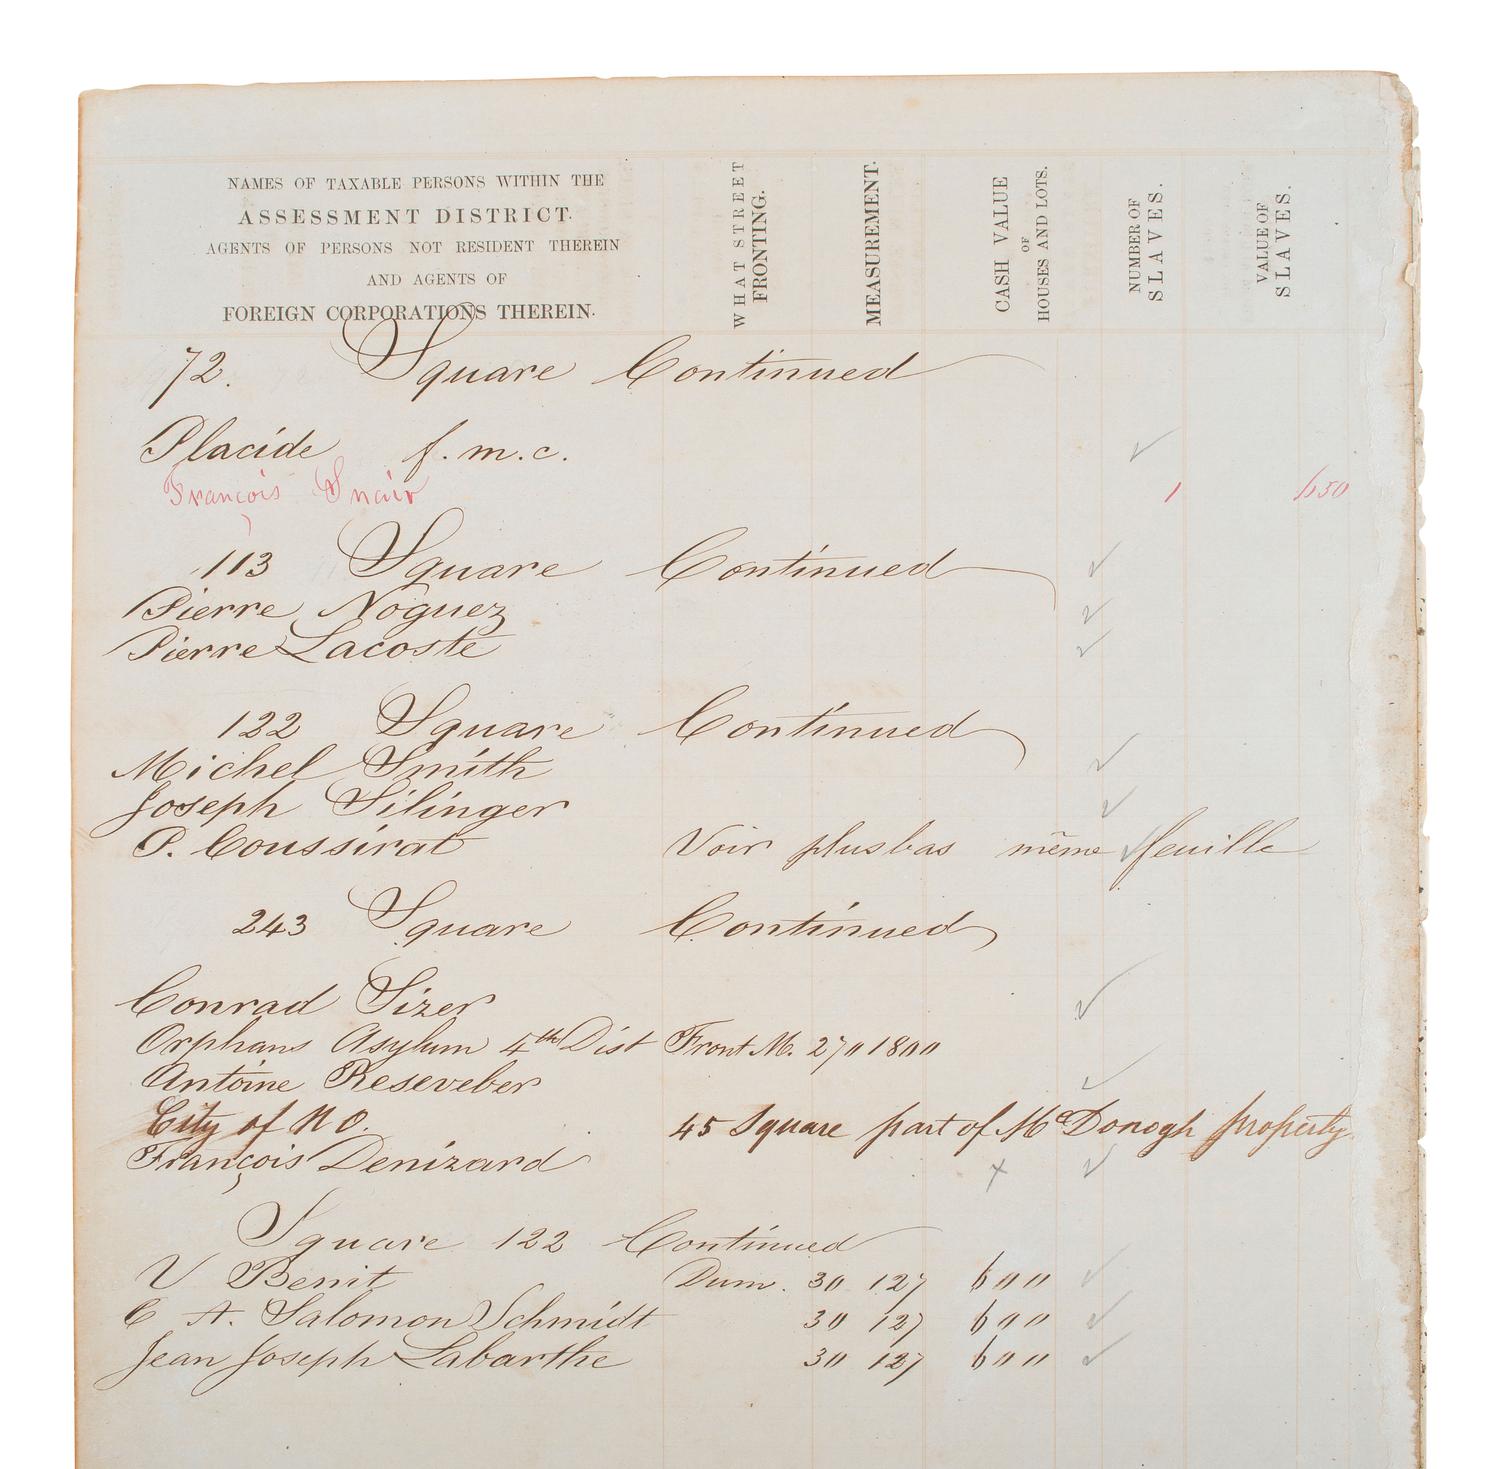 NAMES OF TAXABLE PERSONS WITHIN THE
ASSESSMENT DISTRICT.
AGENTS OF PERSONS NOT RESIDENT THEREIN
AND AGENTS OF
FOREIGN CORPORATIONS THEREIN.
WHAT STREET
FRONTING.
MEASUREMENT.
CASH VALUE
OF
HOUSES AND LOTS.
NUMBER OF
SLAVES.
VALUE OF
SLAVES.
72. Square Continued
Placide f.m.c.
François Snair 1 650
113 Square Continued
Pierre Noguez
Pierre Lacoste
122 Square Continued
Michel Smith
Joseph Silinger
P. Coussirat Voir plus bas même feuille
243 Square Continued
Conrad Sizer
Orphans Asylum 4th Dist Front M. 270 1800
Antoine Reseveber
City of N O. 45 Square part of Mc Donogh property
François Denizard
Square 122 Continued
V Benit Dum. 30 127 600
C A. Salomon Schmidt 30 127 600
Jean Joseph Labarthe 30 127 600